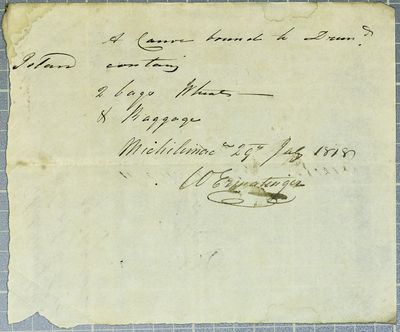 A Canoe bound to Drumd.
Island contaig
2 bags Wheat
& Baggage
Michilimac 29th July 1818
Ermatinger